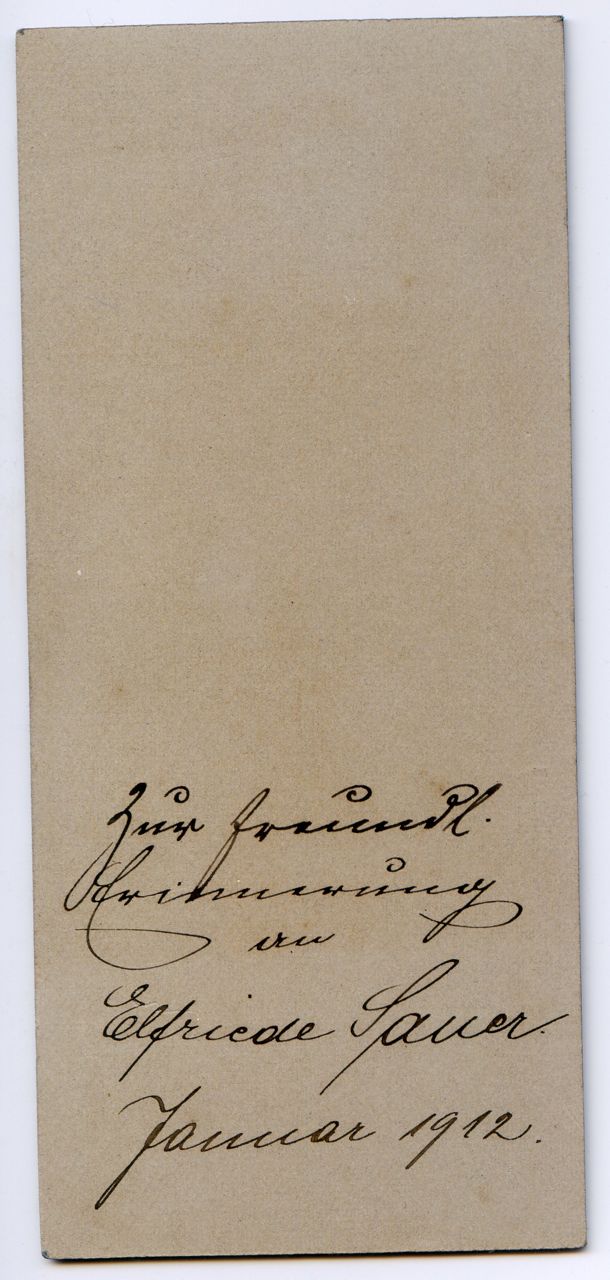 Zur freundl.
Erinnerung
an
Elfriede Sauer.
Januar 1912.